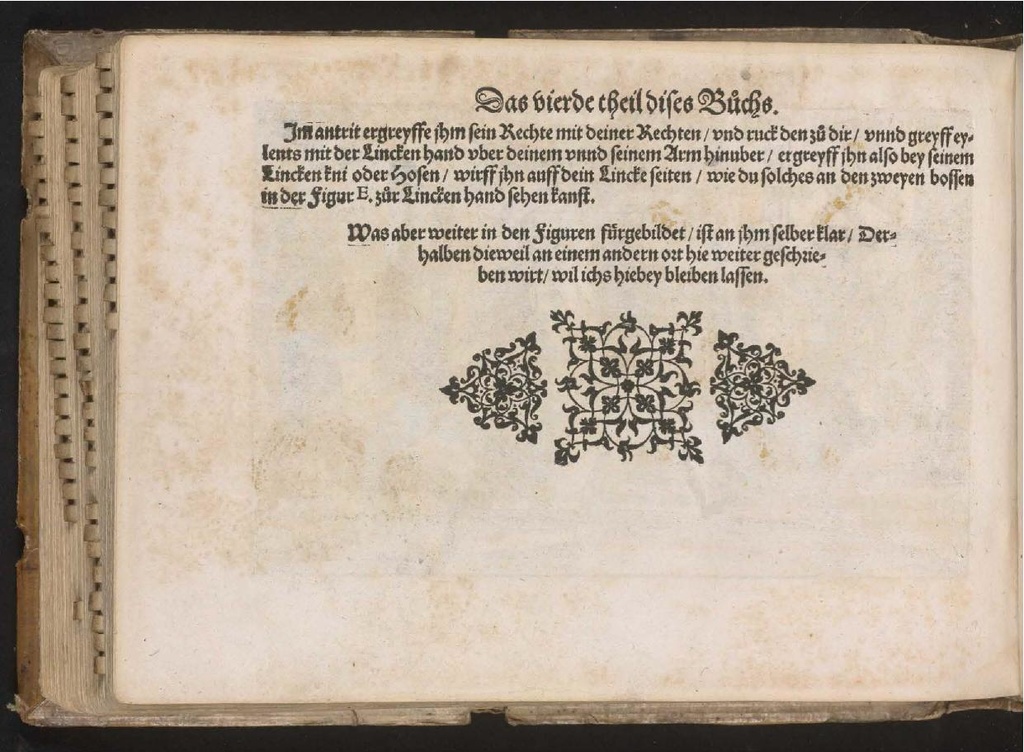 Das vierde theil dises Bůchs.
Im antrit ergreyffe jhm sein Rechte mit deiner Rechten / vnd ruck den zů dir / vnnd greyff ey-
lents mit der Lincken hand vber deinem vnnd seinem Arm hinuber / ergreyff jhn also bey seinem
Lincken kni oder Hosen / wirff jhn auff dein Lincke seiten / wie du solches an den zweyen bossen
in der Figur E. zůr Lincken hand sehen kanst.
Was aber weiter in den Figuren fürgebildet / ist an jhm selber klar / Der-
halben dieweil an einem andern ort hie weiter geschrie-
ben wirt / wil ichs hiebey bleiben lassen.